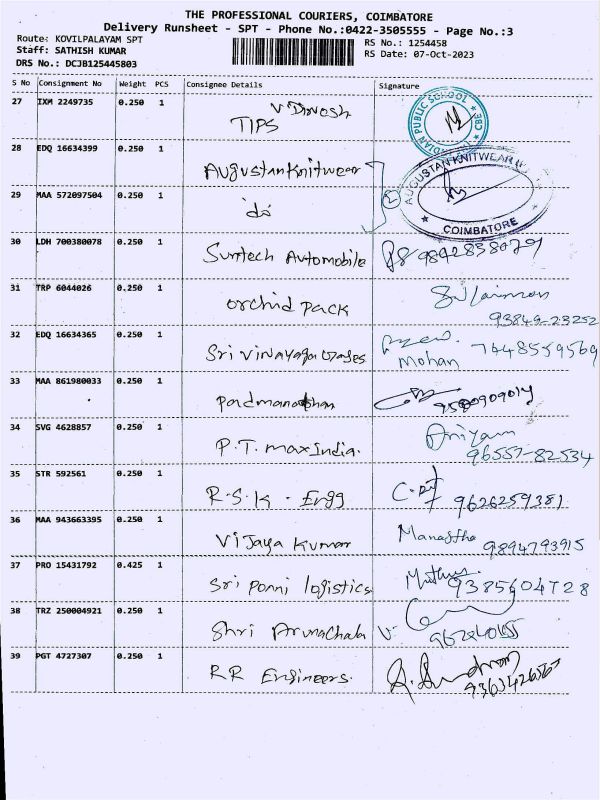 THE PROFESSIONAL COURIERS, COIMBATORE
Delivery Runsheet - SPT - Phone No.:0422-3505555 - Page No.:3
Route: KOVILPALAYAM SPT
Staff: SATHISH KUMAR
DRS No.: DCJB125445803
RS No.: 1254458
RS Date: 07-Oct-2023
S No Consignment No Weight PCS Consignee Details Signature
27 IXM 2249735 0.250 1
TIPS
PUBLIC SCHOOL ★ CBE ★
28 EDQ 16634399 0.250 1 Augustan Knitwear
AUGUSTAN KNITWEAR
★ COIMBATORE ★
29 MAA 572097504 0.250 1 do 2
30 LDH 700380078 0.250 1 Suntech Automobile
31 TRP 6044026 0.250 1 orchid pack
93849-23252
32 EDQ 16634365 0.250 1 Sri Vinayaga
Mohan 7448559569
33 MAA 861980033 0.250 1 padmanabhan
34 SVG 4628857 0.250 1 P.T. max India.
96557-82534
35 STR 592561 0.250 1 R.S.K. Engg
9626259381
36 MAA 943663395 0.250 1 Vijaya Kumar
9894793915
37 PRO 15431792 0.425 1 Sri ponni logistics
9385604728
38 TRZ 250004921 0.250 1 Shri Arunachala
39 PGT 4727307 0.250 1 RR Engineers.